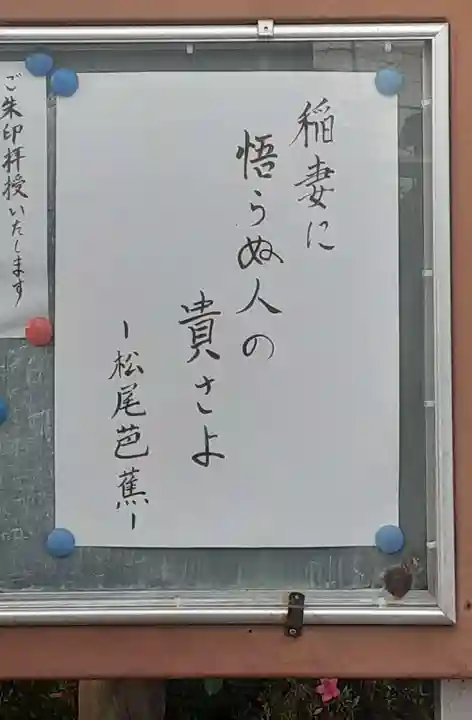 稲妻に
悟らぬ人の
貴さよ
ー松尾芭蕉ー
ご朱印拝授いたします